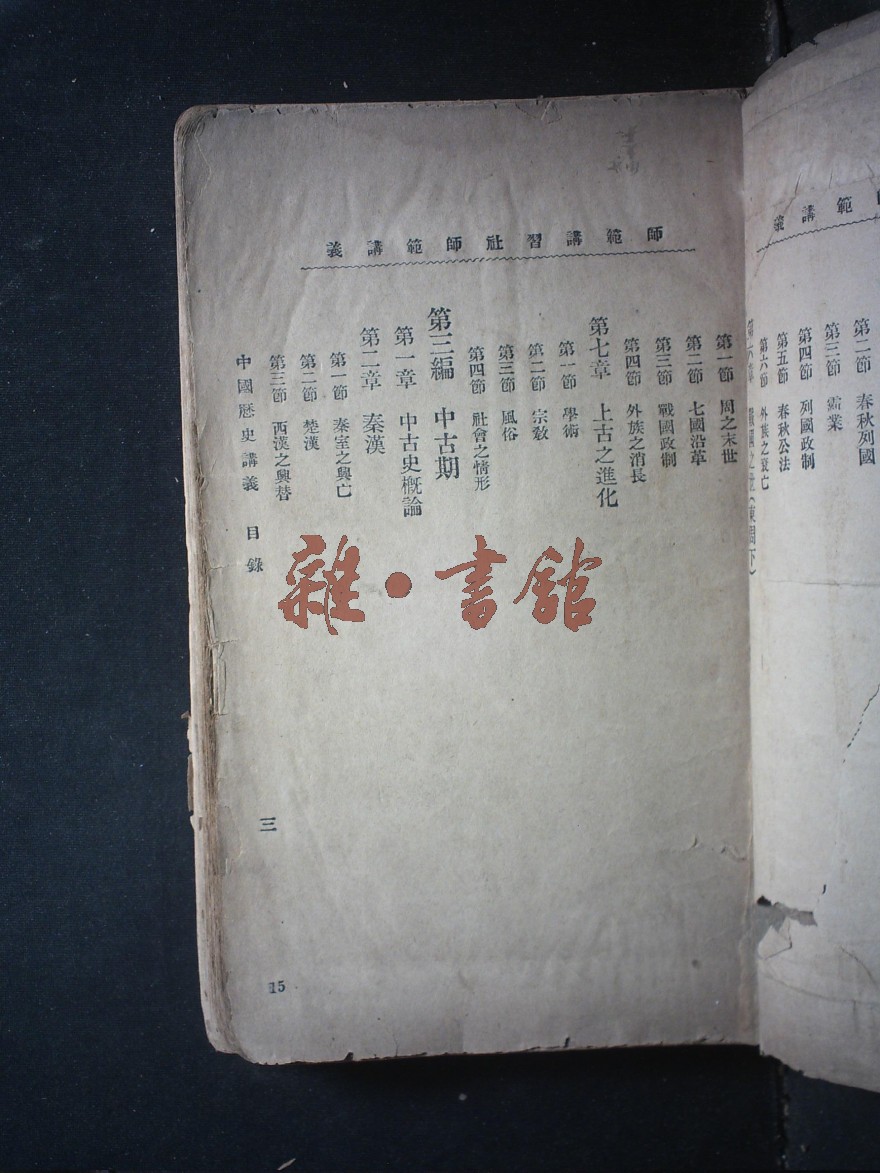 範講義
第二節 春秋列國
第三節 霸業
第四節 列國政制
第五節 春秋公法
第六節 外族之衰亡
師範講習社師範講義
第一節 周之末世
第二節 七國沿革
第三節 戰國政制
第四節 外族之消長
第七章 上古之進化
第一節 學術
第二節 宗敎
第三節 風俗
第四節 社會之情形
第三編 中古期
第一章 中古史槪論
第二章 秦漢
第一節 秦室之興亡
第二節 楚漢
第三節 西漢之興替
中國歷史講義 目錄
三
15
雜·書館